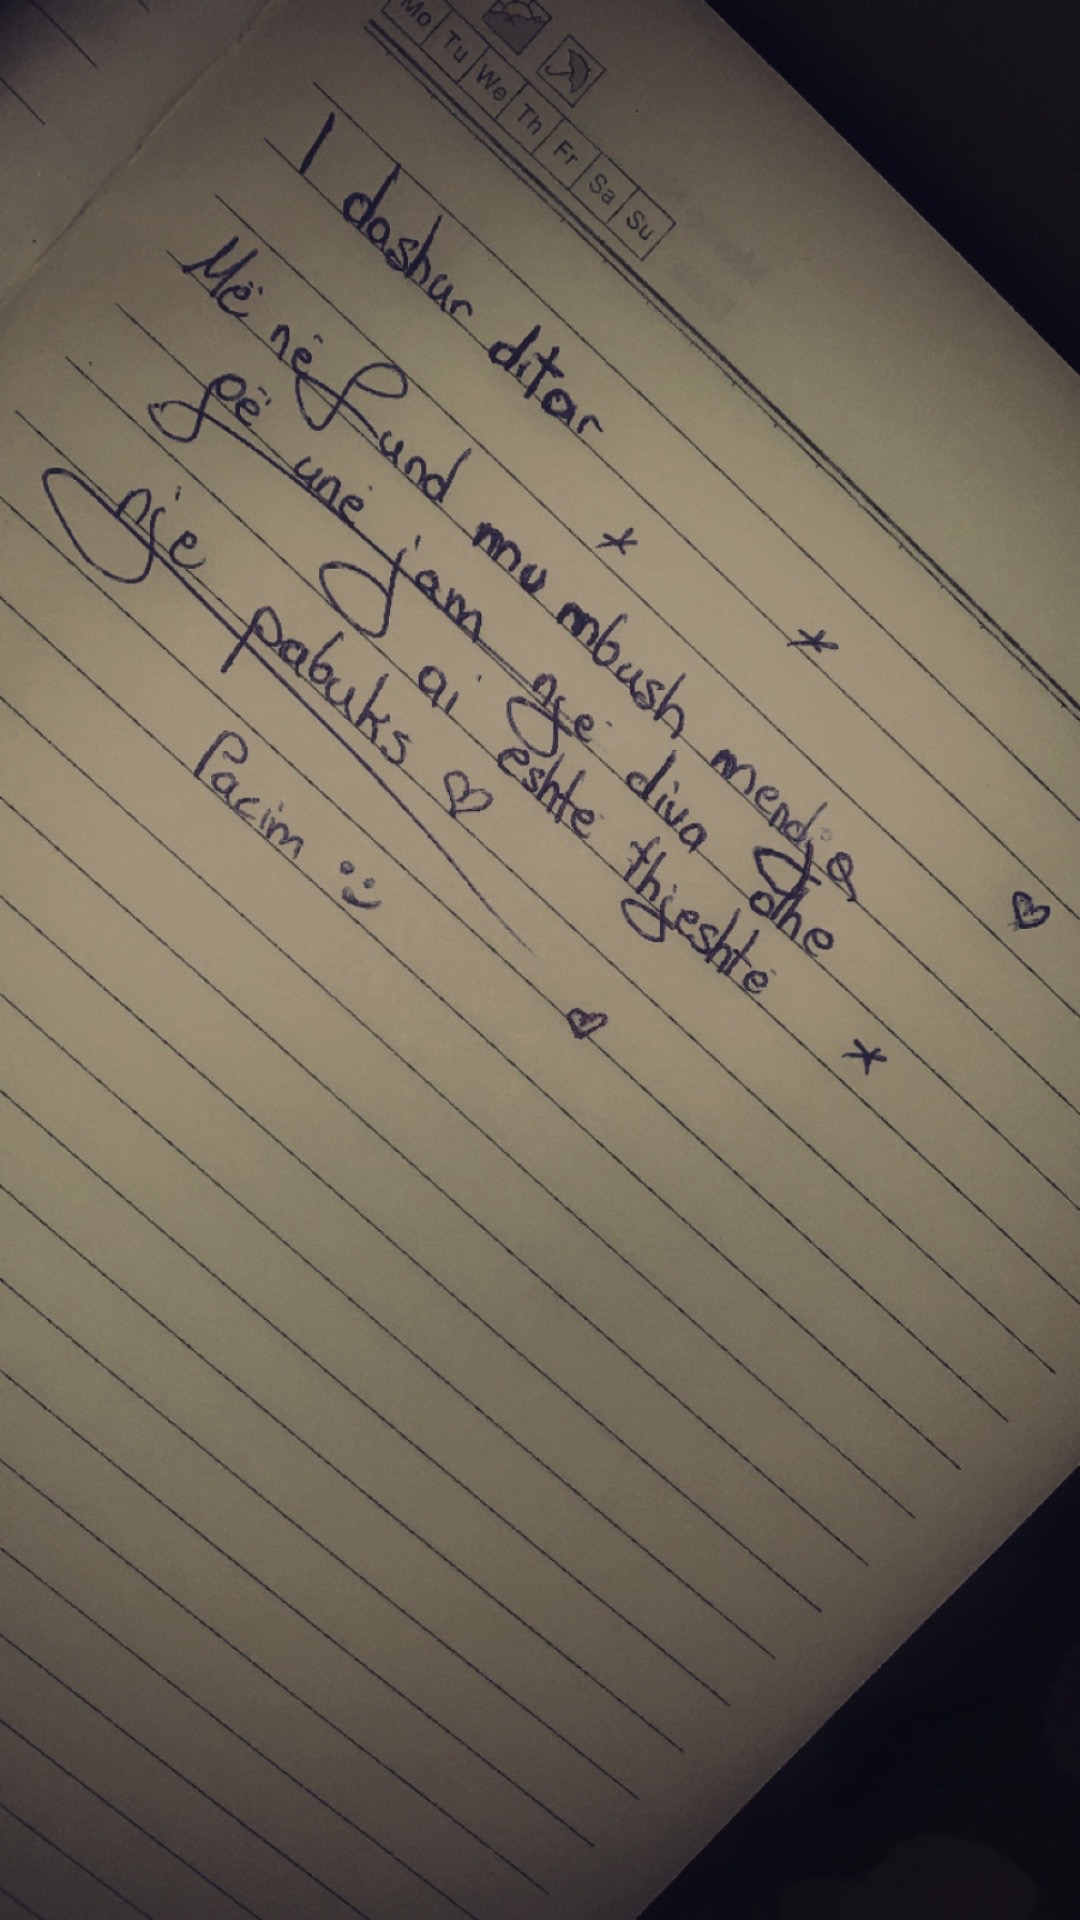 Mo Tu We Th Fr Sa Su
I dashur ditar
Më në fund mu mbush mendja
që unë jam një diva dhe
ai eshte thjeshtë
një pabuks ♡
Pacim :)